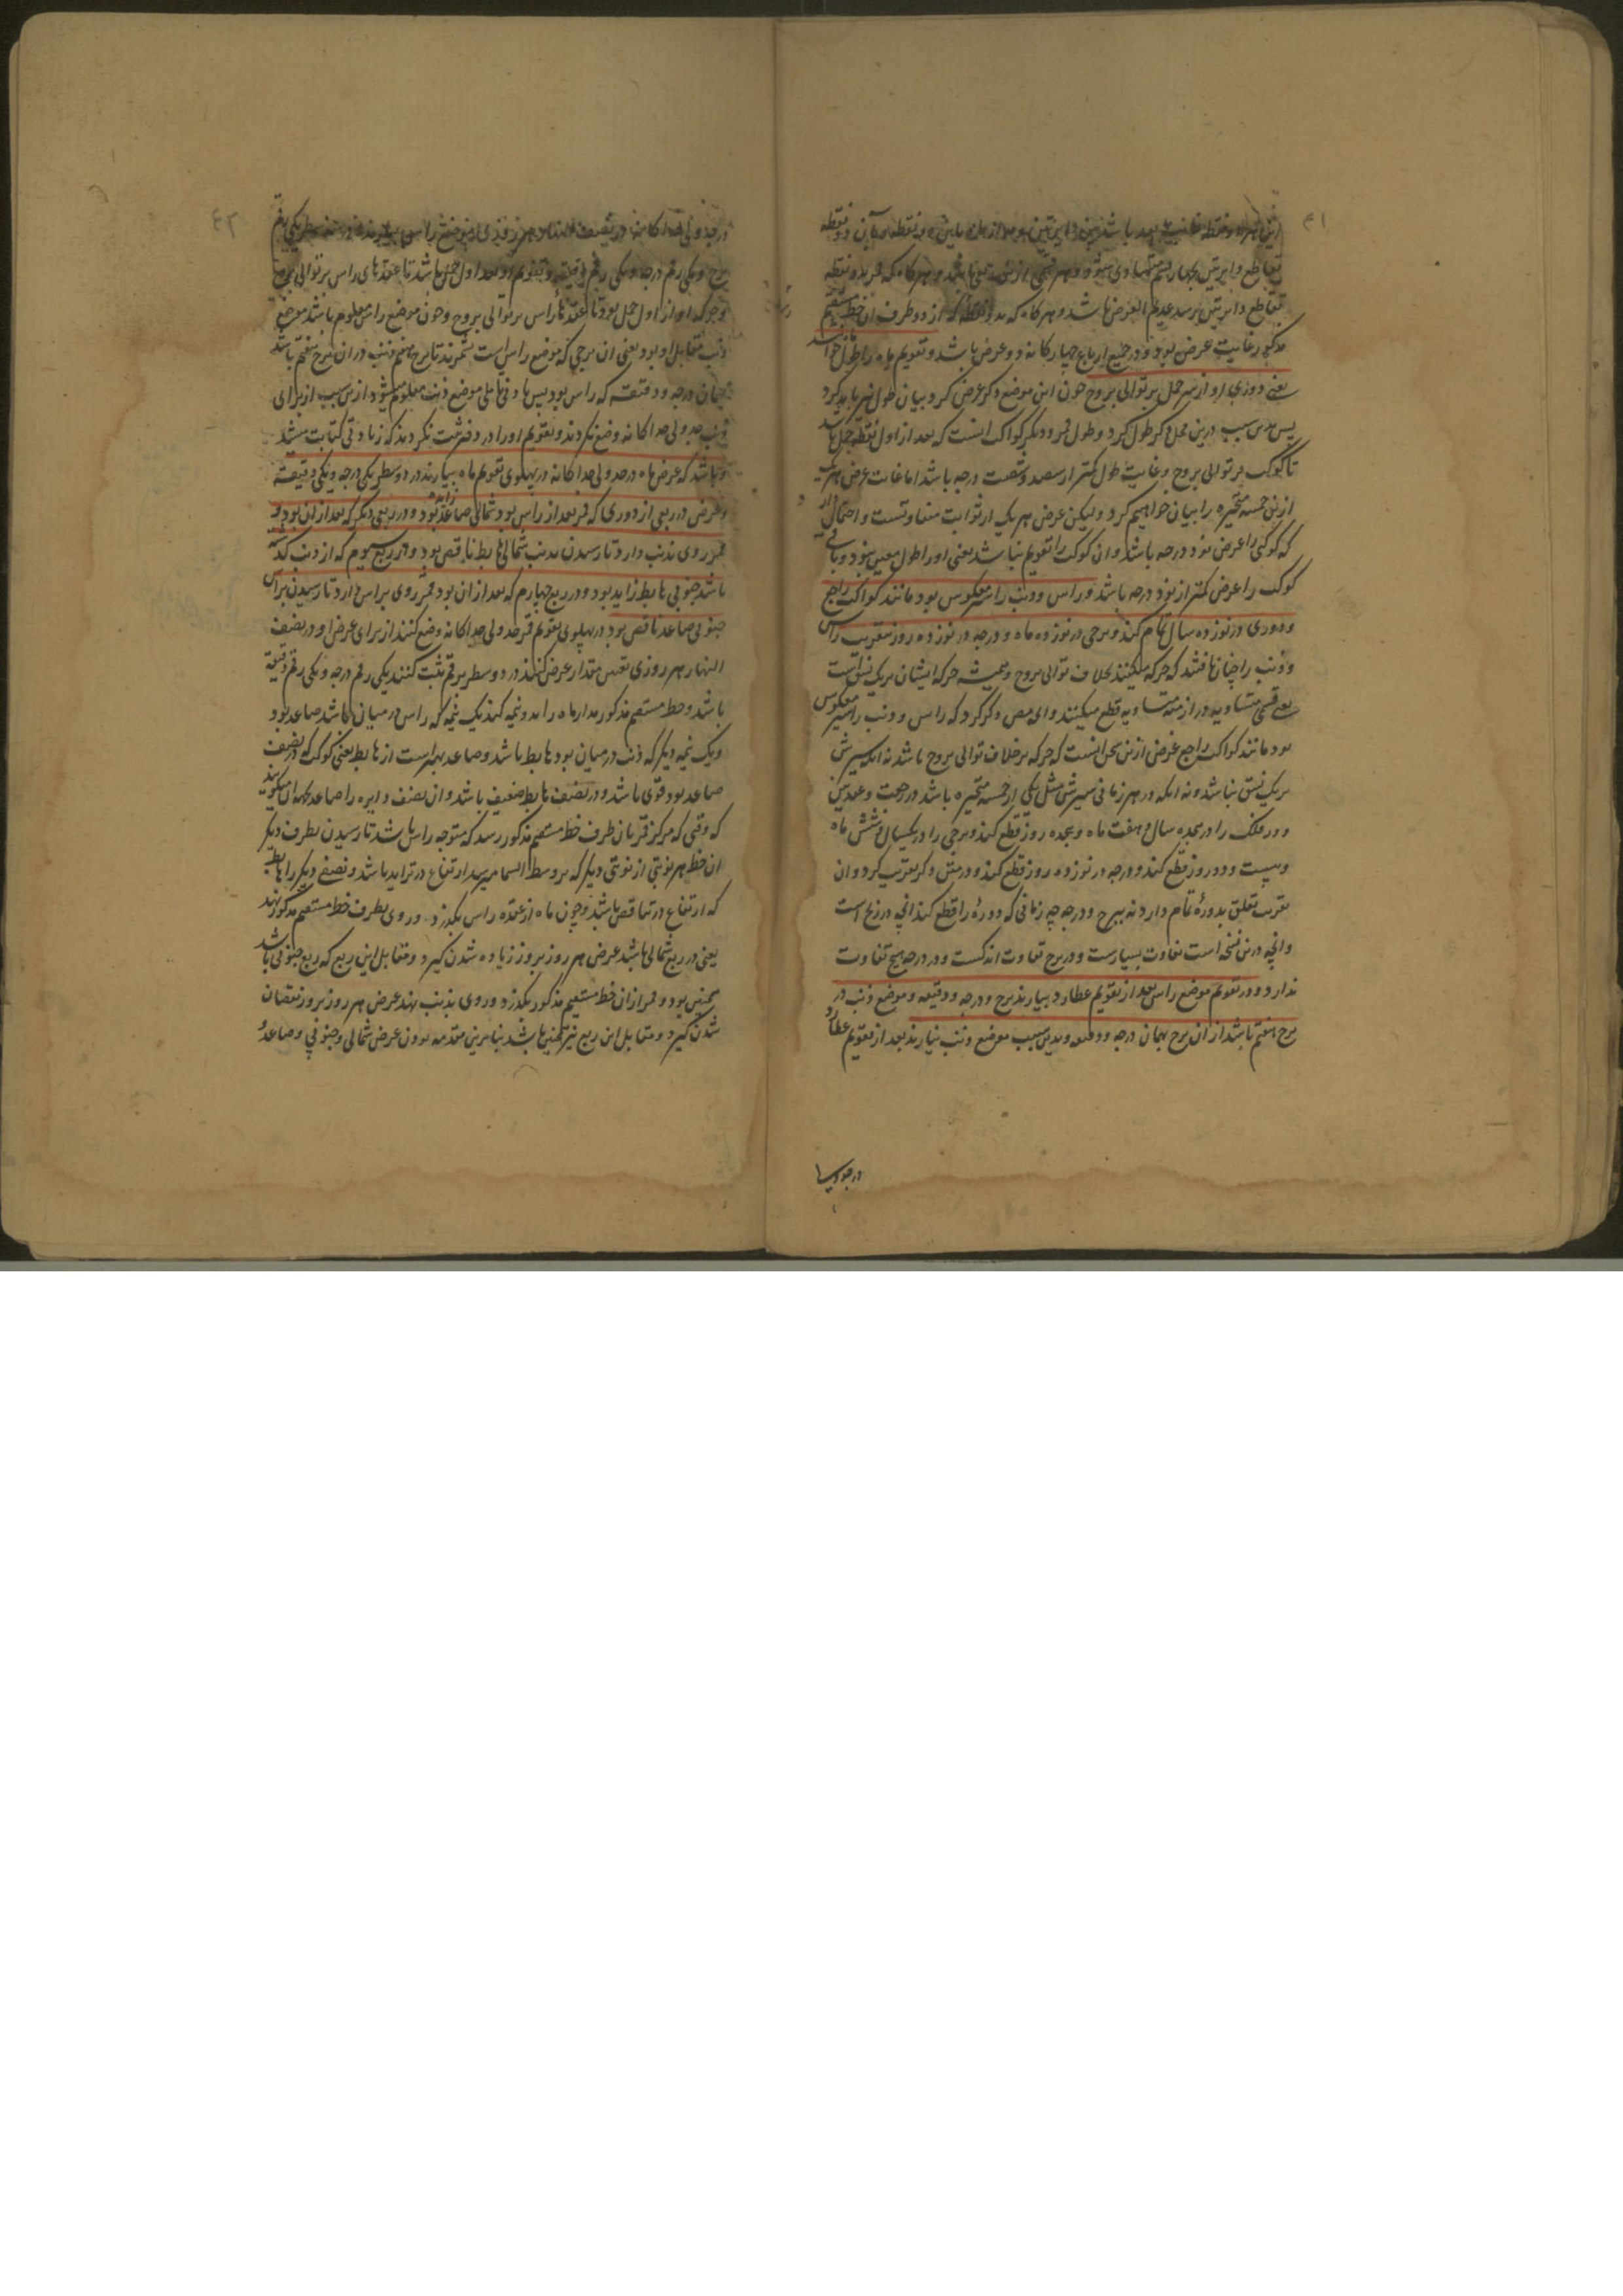 ۴۱
تقاطع دایرتین برسد عدیم العرض باشد و هر کاه که بدو نقطه از دو طرف آن خط مستقیم
مذکور رسد غایت عرض بود و در جمیع ارباع چهارکانه ذو عرض باشد و تقویم ماه را طول خوانند
یعنی دوری او از سر حمل بر توالی بروج چون این موضع ذکر عرض کرد بیان طول نیز باید کرد
پس بدین سبب درین محل ذکر طول کرد و طول قمر و دیگر کواکب آنست که بعد از اول نقطه حمل باشد
تا کوکب بر توالی بروج و غایت طول کمتر از سیصد و شصت درجه باشد اما غایت عرض هر یک
ازین خمسه متحیره را بیان خواهیم کرد ولیکن عرض هر یک از ثوابت متفاوتست و احتمال دارد
که کوکبی را عرض نود درجه باشد و آن کوکب را تقویم نباشد یعنی او را طول معین نبود و باقی
کوکب را عرض کمتر از نود درجه باشد و راس و ذنب را سیر معکوس بود مانند کواکب راجع
و دوری در نوزده سال تمام کند و برجی در نوزده ماه و درجه در نوزده روز بتقریب راس
و ذنب را چنان یافتند که حرکه میکنند بخلاف توالی بروج و همیشه حرکه ایشان بر یک نسق است
یعنی قسی متساویه در ازمنه متساویه قطع میکنند و ای مص ذکر کرد که راس و ذنب را سیر معکوس
بود مانند کواکب راجع غرض ازین سخن آنست که حرکه بر خلاف توالی بروج باشد نه آنکه سیرش
بر یک نسق نباشد و نه آنکه در هر زمانی سیرش مثل یکی از خمسه متحیره باشد در رجعت و عندین
دور فلک را در هجده سال و هفت ماه و هجده روز قطع کند و برجی را در یکسال و شش ماه
و بیست و دو روز قطع کند و درجه در نوزده روز قطع کند و در متن ذکر بتقریب کرد و آن
تقریب تعلق بدوره تمام دارد نه ببرج و درجه چه زمانی که دوره را قطع کند آنچه در زیج است
و آنچه درین نسخه است تفاوت بسیارست و در برج تفاوت اندکست و در درجه هیچ تفاوت
ندارد و در تقویم موضع راس بعد از تقویم عطارد بیارند برج و درجه و دقیقه و موضع ذنب در
برج هفتم باشد از آن برج بهمان درجه و دقیقه و بدین سبب موضع ذنب نیارند بعد از تقویم عطارد
۴۲
وجوکه او از اول حمل بود تا عقده راس بر توالی بروج و چون موضع راس معلوم باشد موضع
ذنب مقابل او بود یعنی آن برجی که موضع راس است بشمرند تا برج هفتم ذنب در آن برج هفتم باشد
بهمان درجه و دقیقه که راس بود پس موضع ذنب معلوم میشود ازین سبب از برای
ذنب جدولی جداکانه وضع نکردند و تقویم او را در دفتر ثبت نکردند که زیادتی کتابت میشد
و باشد که عرض ماه در جدولی جداکانه در پهلوی تقویم ماه بیارند در دو سطر یکی درجه و یکی دقیقه
و عرض در ربعی از دوری که قمر بعد از راس بود شمالی صاعد زاید بود و در ربعی دیگر که بعد از آن بود و
قمر روی بذنب دارد تا رسیدن بذنب شمالی هابط ناقص بود و در ربع سیوم که از ذنب کذشته
باشد جنوبی هابط زاید بود و در ربع چهارم که بعد از آن بود قمر روی براس دارد تا رسیدن براس
جنوبی صاعد ناقص بود در پهلوی تقویم قمر جدولی جداکانه وضع کنند از برای عرض او و در نصف
النهار هر روزی تعیین مقدار عرض کنند در دو سطر برقم ثبت کنند یکی رقم درجه و یکی رقم دقیقه
باشد و خط مستقیم مذکور مدار ماه را بدو نیمه کند یک نیمه که راس در میان باشد صاعد بود
و یک نیمه دیگر که ذنب در میان بود هابط باشد و صاعد بهتر است از هابط یعنی کوکب که در نصف
صاعد بود قوی باشد و در نصف هابط ضعیف باشد و آن نصف دایره را صاعد بجهت آن میکویند
که وقتی که مرکز قمر بآن طرف خط مستقیم مذکور رسد که متوجه راس باشد تا رسیدن بطرف دیکر
آن خط هر نوبتی از نوبتی دیکر که بر وسط السما میرسد ارتفاع در تزاید باشد و نصف دیکر را هابط
که ارتفاع در تناقص باشد و چون ماه از عقده راس بکذرد و روی بطرف خط مستقیم مذکور نهد
یعنی در ربع شمالی باشد عرض هر روز بروز زیاده شدن کیرد و مقابل این ربع که ربع جنوبی باشد
همچنین بود و قمر از آن خط مستقیم مذکور بکذرد و روی بذنب نهد عرض هر روز بروز نقصان
شدن کیرد و مقابل این ربع نیز همچنین باشد بنابرین مقدمه بودن عرض شمالی و جنوبی و صاعد و